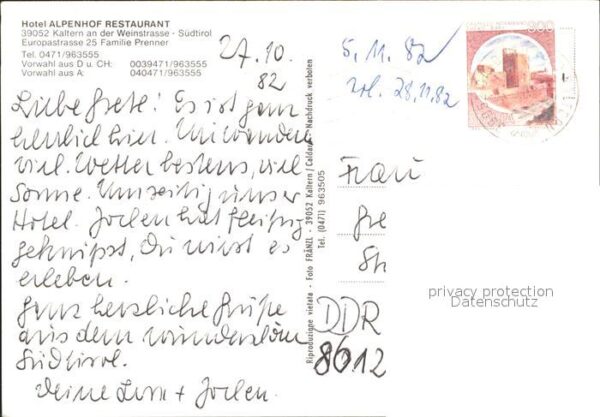 Hotel ALPENHOF RESTAURANT
39052 Kaltern an der Weinstrasse - Südtirol
Europastrasse 25 Familie Prenner
Tel. 0471/963555
Vorwahl aus D u. CH: 0039471/963555
Vorwahl aus A: 040471/963555
27.10.
82
Liebe Grete! Es ist ganz
herrlich hier. Wir wandern
viel. Wetter bestens, viel
Sonne. Umseitig unser
Hotel. Jochen hat fleißig
geknipst, Du wirst es
erleben.
Ganz herzliche Grüße
aus dem wunderschönen
Südtirol.
Deine + Jochen.
Riproduzione vietata - Foto FRÄNZL - 39052 Kaltern / Caldaro - Nachdruck verboten
Tel. (0471) 963505
5.11.82
28.11.82
300
Frau
Gre
St
DDR
8012
privacy protection
Datenschutz